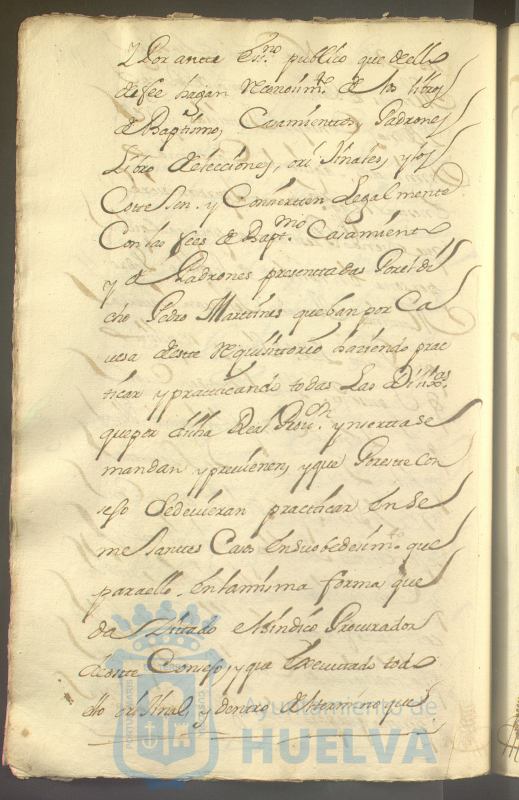 y Por antte Es.no publico que de ello
de fee hagan Reconozim.to de los libros
de Baptismo, Casamientos, Padrones
Libro de elecciones, orijinales, y los
Cottesen y Conviertten Legalmente
Con las fees de Bapt.mo Casamiento
y de Padrones presenttadas Por el di
cho Pedro Marttines que ban por Ca
vesa deste Requisittorio haziendo prac
ticar y practicando todas Las Dilix.as
que por dicha Real Prov.on y inserta se
mandan y previenen, y que Por este Con
sejo se devieran practicar En se
mejanttes Casos En su obedesim.to que
para ello En la misma forma que
da Zittado el Sindico Procurador
de este Consejo, y que Executado todo
ello orijinal, y dentro del termino que
Ayuntamiento de
HUELVA